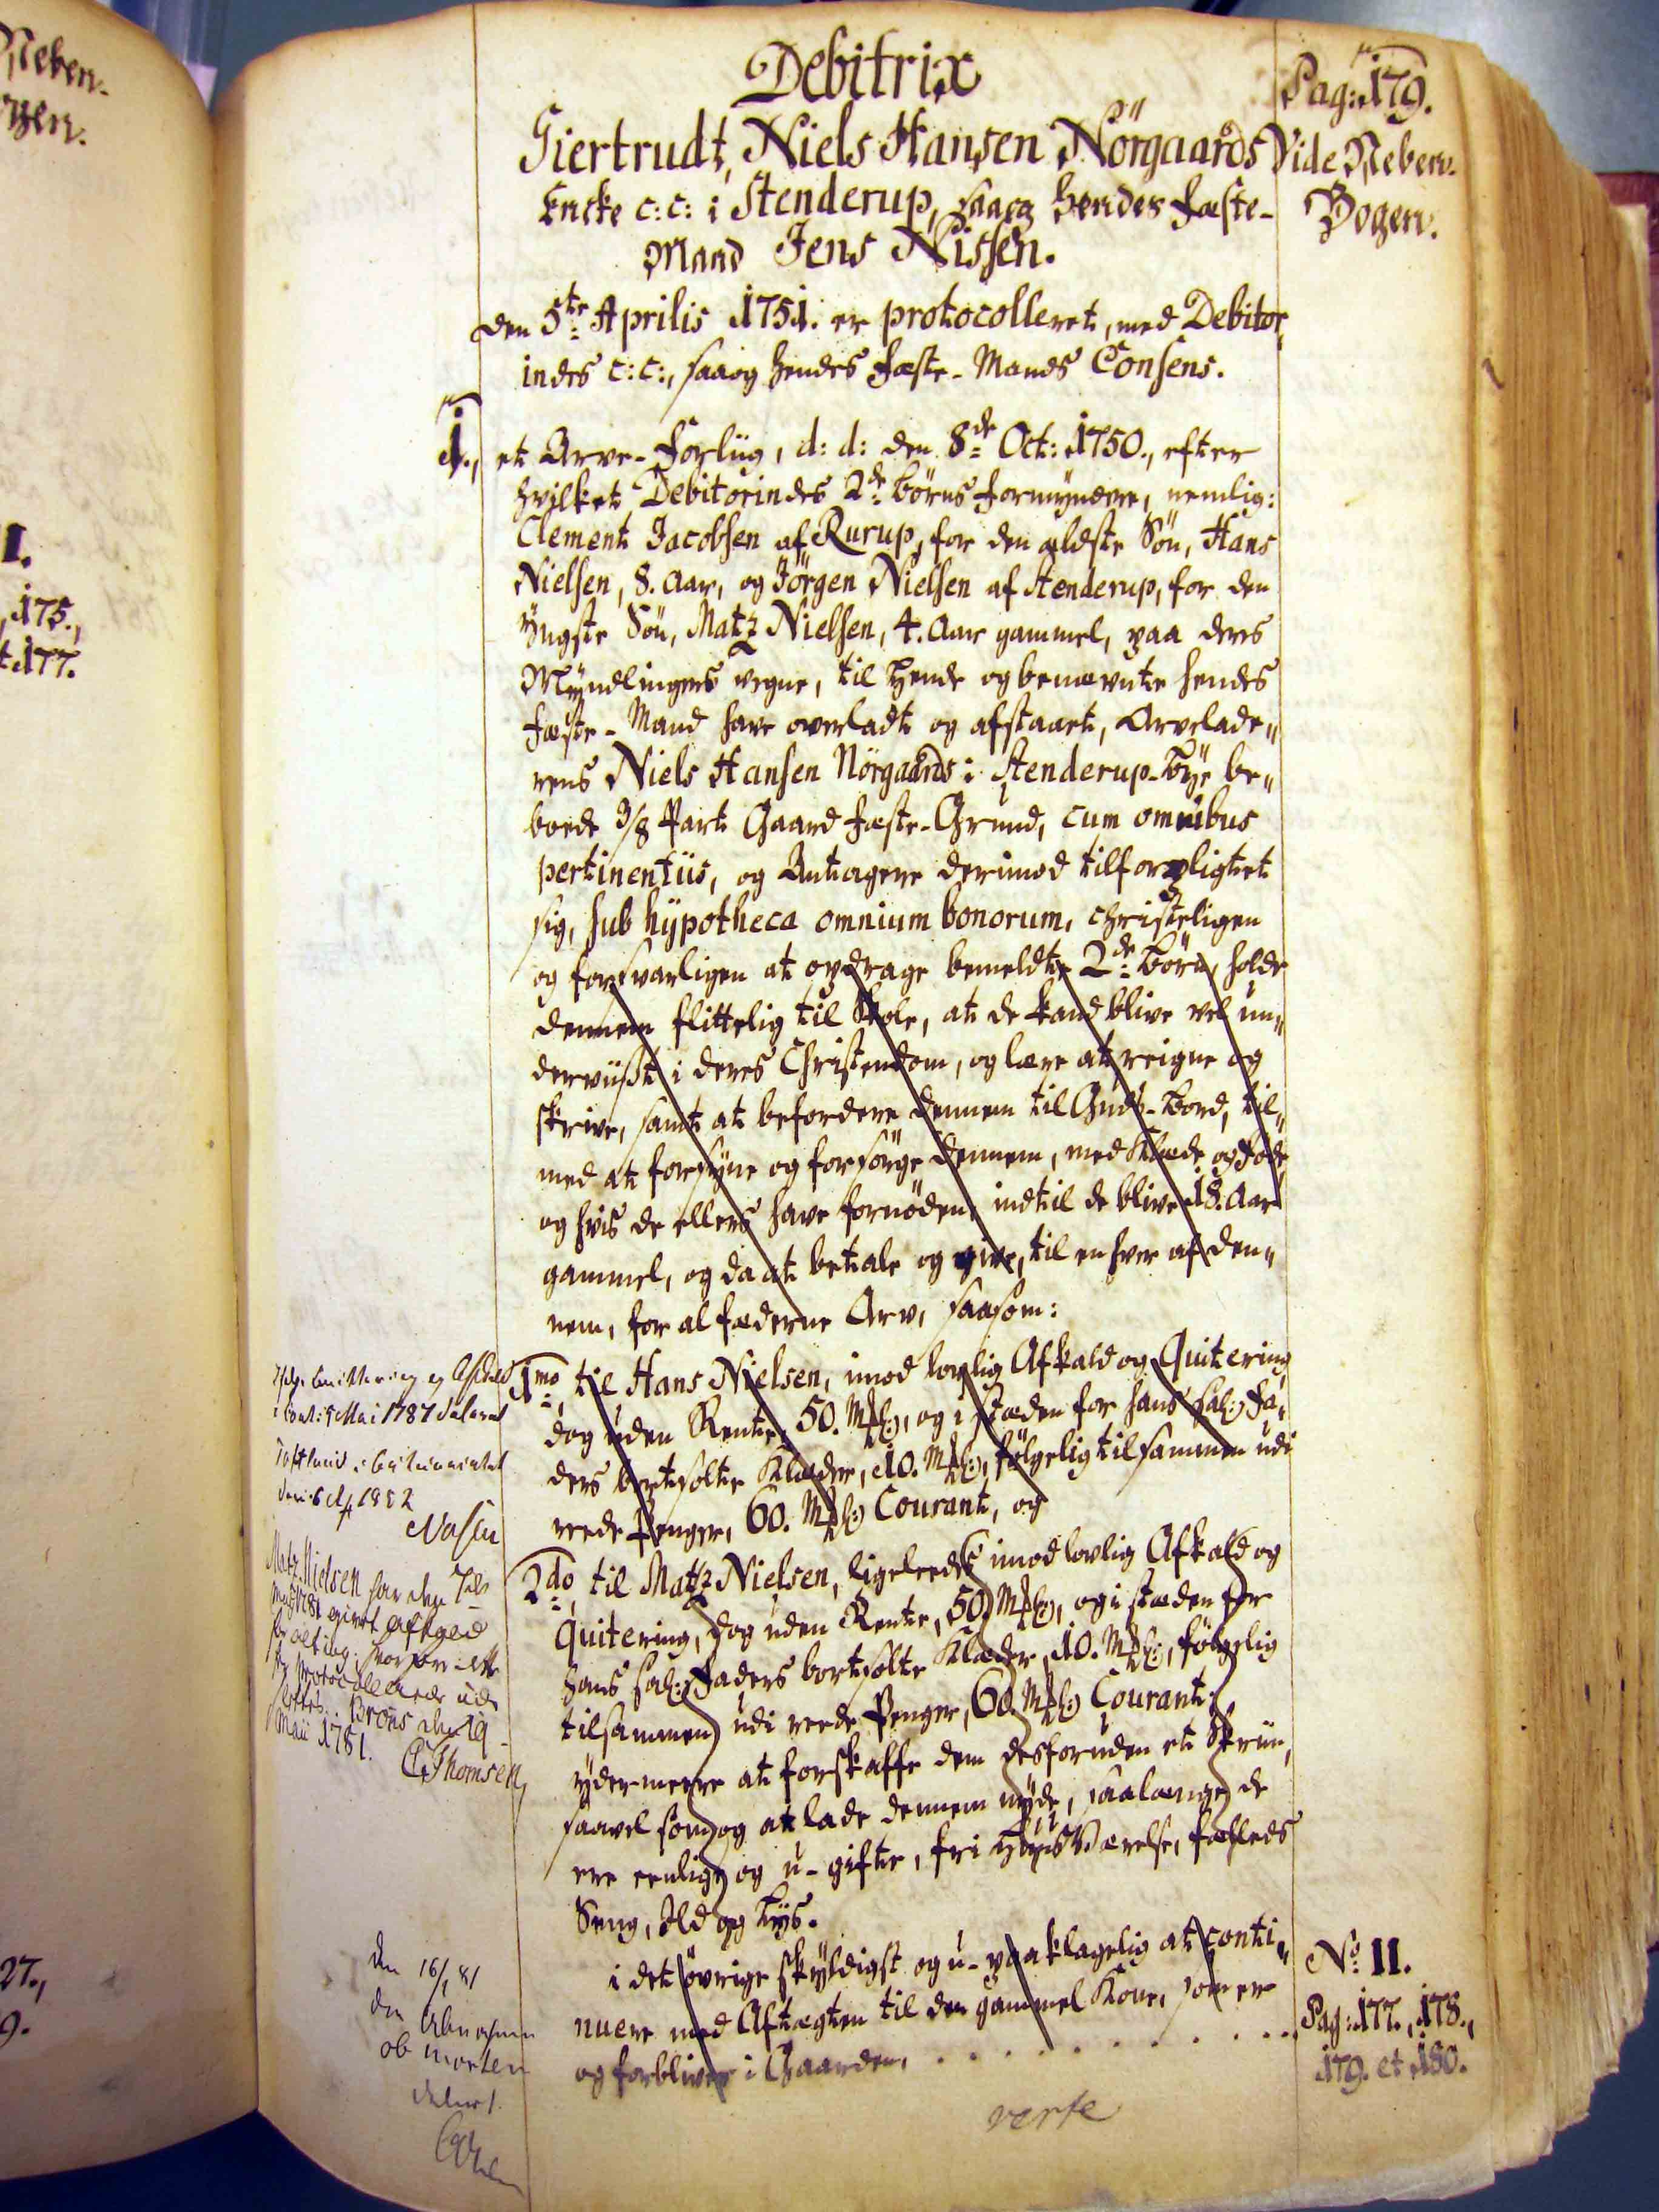 Debitrix
Pag: 179.
Giertrudt, Niels Hansen Nörgaards
Vide Neben-
Encke c: c: i Stenderup, saaog hendes Fæste-
Bogen.
Mand Jens Nissen.
den 5te Aprilis 1751. er protocolleret, med Debitor,
indes c: c:, saaog hendes Fæste-Mands Consens.
1., et Arve-Forliig, d: d: den 8de Oct: 1750., efter
hvilket Debitorindes 2de börns formyndere, nemlig:
Clement Jacobsen af Rurup, for den ældste Sön, Hans
Nielsen, 8. Aar, og Jörgen Nielsen af Stenderup, for den
yngste Sön, Matz Nielsen, 4. Aar gammel, paa deres
Myndlingers vegne, til hende og benævnte hendes
Fæste-Mand have overladt og afstaaet, Arvelade„
rens Niels Hansen Nörgaards i Stenderup-Bye be„
boede 3/8 Part Gaard Fæste-Grund, cum omnibus
pertinentiis, og Antagere derimod tilforpligtet
sig, sub hypotheca omnium bonorum, christeligen
og forsvarligen at opdrage bemeldte 2de börn, holde
dennem flittelig til Skole, at de kand blive vel un„
derviißt i deres Christendom, og lære at reigne og
skrive, samt at befordere dennem til Guds-Bord, til„
med at forsyne og forsörge dennem, med Klæde og Föde,
og hvis de ellers have fornöden, indtil de blive 18. Aar
gammel, og da at betale og give, til en hver af den„
nem, for al fæderne Arv, saasom:
1mo, til Hans Nielsen, imod lovlig Afkald og Quitering,
dog uden Rente, 50. Mkl:, og i stæden for hans Sal: Fa„
ders bortsolte Klæder, 10. Mkl:, fölgelig tilsammen udi
reede Penger, 60. Mkl: Courant, og
2do, til Matz Nielsen, ligeleedes imod lovlig Afkald og
Quitering, dog uden Rente, 50. Mkl:, og i stæden for
hans Sal: Faders bortsolte Klæder, 10. Mkl:, fölgelig
tilsammen udi reede Penger, 60. Mkl: Courant;
ydermeere at forskaffe dem desforuden et Skriin,
saavel som og at lade dennem nyde, saalænge de
ere eenlige og u-gifte, fri Huus Værelse, fælleds
Seng, Ild og Lys.
i det övrige skyldigst og u-paaklagelig at conti„
nuere med Aftægten til den gammel Kone, som er
og forbliver i Gaarden.
verte
5 Mai 1787
1852
Matz Nielsen har den 7de
Maji 1781 givet Afkged
for alting, hvorfore dette
Bröns den 19
Maii 1781.
C. Thomsen
den 16/ 81
No: 11.
Pag: 177., 178.,
179. et 180.
Neben-
gen.
I.
, 175.,
t 177.
27.,
9.